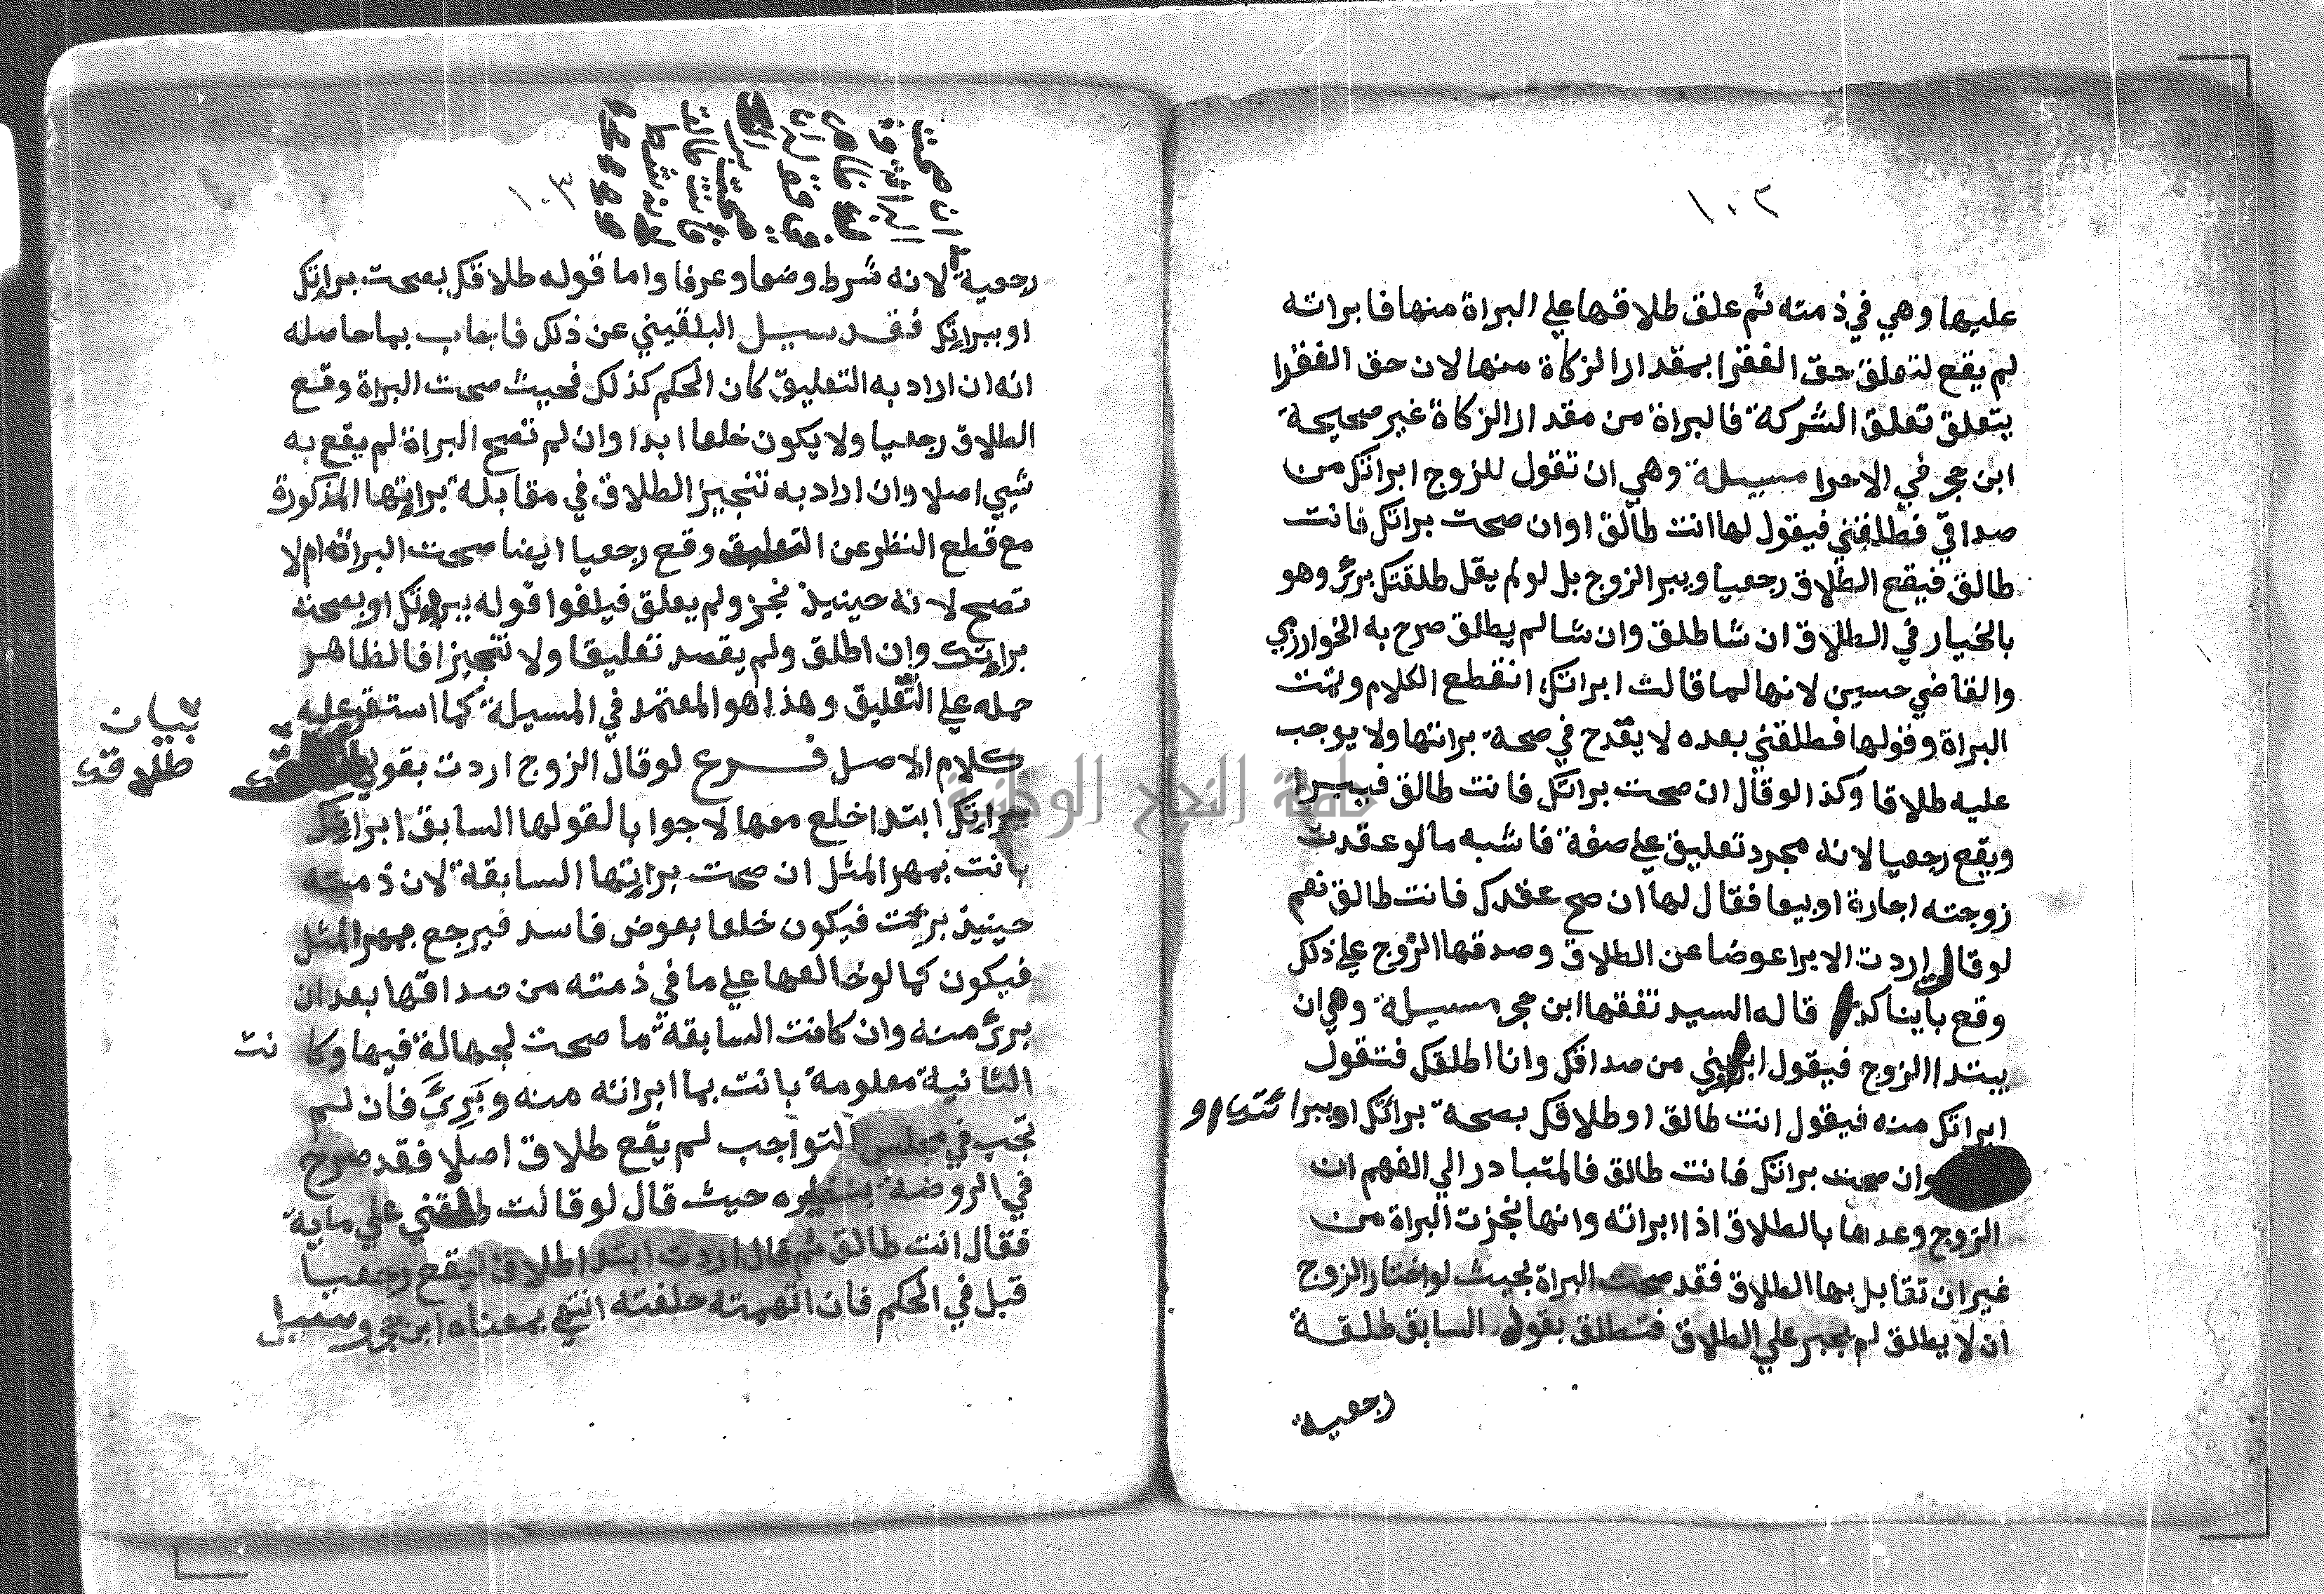 ١٠٢
عليها وهي في ذمته ثم علق طلاقها علي البراة منها فابراته
لم يقع لتعلق حق الفقرا بمقدار الزكاة منها لان حق الفقرا
يتعلق تعلق الشركة فالبراة من مقدار الزكاة غير صحيحة
ابن حجر في الاحرا مسيلة وهي ان تقول للزوج ابراتك من
صداقي فطلقني فيقول لها انت طالق او ان صحت براتك فانت
طالق فيقع الطلاق رجعيا ويبر الزوج بل لو لم يقل طلقتك برئ وهو
بالخيار في الطلاق ان شا طلق وان شا لم يطلق صرح به الخوارزمي
والقاضي حسين لانها لما قالت ابراتك انقطع الكلام وتمت
البراة وقولها فطلقني بعده لا يقدح في صحة براتها ولا يوجب
عليه طلاقا وكذا لو قال ان صحت براتك فانت طالق فيبرا
ويقع رجعيا لانه مجرد تعليق علي صفة فاشبه ما لو عقدت
زوجته اجارة او بيعا فقال لها ان صح عقدك فانت طالق نعم
لو قالت اردت الابرا عوضا عن الطلاق وصدقها الزوج علي ذلك
وقع باينا قاله السيد تفقها ابن حجر مسيلة وهي ان
يبتدا الزوج فيقول ابريني من صداقك وانا اطلقك فتقول
ابراتك منه فيقول انت طالق او طلاقك بصحة برائتك او ببرائتك او
وان صحت براتك فانت طالق فالمتبادر الي الفهم ان
الزوج وعدها بالطلاق اذا ابراته وانها نجزت البراة من
غير ان تقابل بها الطلاق فقد صحت البراة بحيث لو اختار الزوج
ان لا يطلق لم يجبر علي الطلاق فتطلق بقوله السابق طلقة
رجعية
١٠٣
ان صحت
رجعية لانه شرط وضعا وعرفا واما قوله طلاقك بصحت براتك
او ببراتك فقد سيل البلقيني عن ذلك فاجاب بما حاصله
انه ان اراد به التعليق كان الحكم كذلك فحيث صحت البراة وقع
الطلاق رجعيا ولا يكون خلعا ابدا وان لم تصح البراة لم يقع به
شيي اصلا وان اراد به تنجيز الطلاق في مقابلة براتها المذكورة
مع قطع النظر عن التعليق وقع رجعيا ايضا صحت البراة ام لا
تصح لانه حينيذ نجز ولم يعلق فيلغوا قوله ببراتك او بصحت
براتك وان اطلق ولم يقصد تعليقا ولا تنجيزا فالظاهر
حمله علي التعليق وهذا هو المعتمد في المسيلة كما استقر عليه
كلام الاصل فرع لو قال الزوج اردت بقولي
ببراتك ابتدا خلع معها لا جوابا لقولها السابق ابراتك
بانت بمهر المثل ان صحت براتها السابقة لان ذمته
حينيذ برئت فيكون خلعا بعوض فاسد فيرجع بمهر المثل
فيكون كما لو خالعها علي ما في ذمته من صداقها بعد ان
برئ منه وان كانت السابقة ما صحت لجهالة فيها وكانت
الثانية معلومة بانت بما ابراته منه وبرئ فان لم
تجب في مجلس التواجب لم يقع طلاق اصلا فقد صرح
في الروضة بنظيره حيث قال لو قالت طلقني علي ماية
فقال انت طالق ثم قال اردت ابتدا طلاق ليقع رجعيا
قبل في الحكم فان اتهمته حلفته انتهي بمعناه ابن حجر وسيل
بيان
طلاقك
جامعة النجاح الوطنية